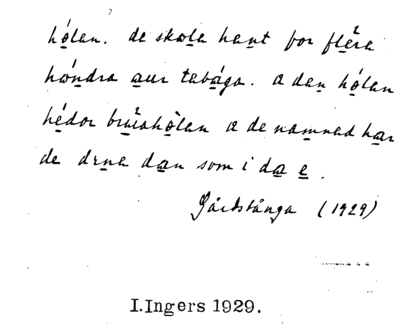 hólan. de skola hant for flera
hondra aur tebága. a den hólan
hédor bruahòlan a de namned har
de drne dan som i da e.
Gårdstånga (1929)
I.Ingers 1929.